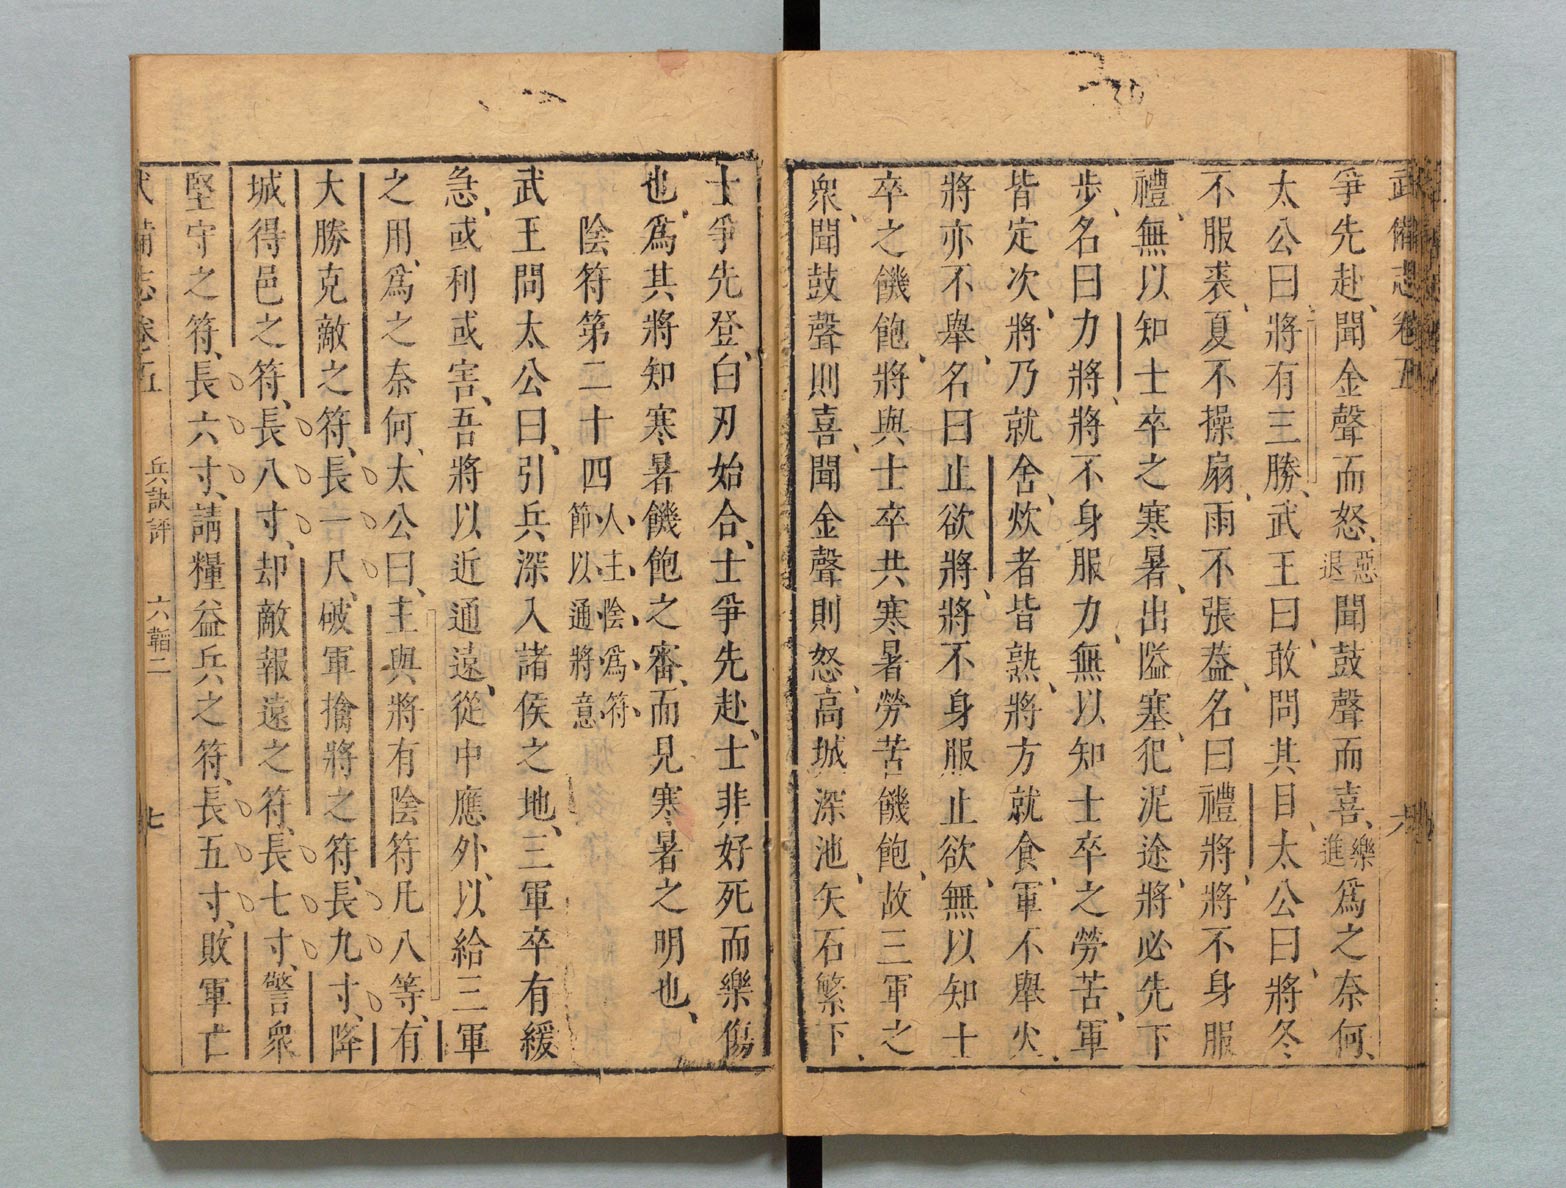 武備志卷五 六
爭先赴、聞金聲而怒、惡退聞鼓聲而喜、樂進爲之奈何、
太公曰、將有三勝、武王曰、敢問其目、太公曰、將冬
不服裘、夏不操扇、雨不張葢、名曰禮將、將不身服
禮、無以知士卒之寒暑、出隘塞、犯泥途、將必先下
步、名曰力將、將不身服力、無以知士卒之勞苦、軍
皆定次、將乃就舍、炊者皆熟、將方就食、軍不舉火、
將亦不舉、名曰止欲將、將不身服止欲、無以知士
卒之饑飽、將與士卒共寒暑勞苦饑飽、故三軍之
衆、聞鼓聲則喜、聞金聲則怒、高城深池、矢石繁下、
士爭先登、白刃始合、士爭先赴、士非好死而樂傷
也、爲其將知寒暑饑飽之審、而見寒暑之明也、
陰符第二十四人主陰爲符節以通將意
武王問太公曰、引兵深入諸侯之地、三軍卒有緩
急、或利或害、吾將以近通遠、從中應外、以給三軍
之用、爲之奈何、太公曰、主與將有陰符凡八等、有
大勝克敵之符、長一尺、破軍擒將之符、長九寸、降
城得邑之符、長八寸、却敵報遠之符、長七寸、警衆
堅守之符、長六寸、請糧益兵之符、長五寸、敗軍亡
武備志卷五 兵訣評 六韜二 七